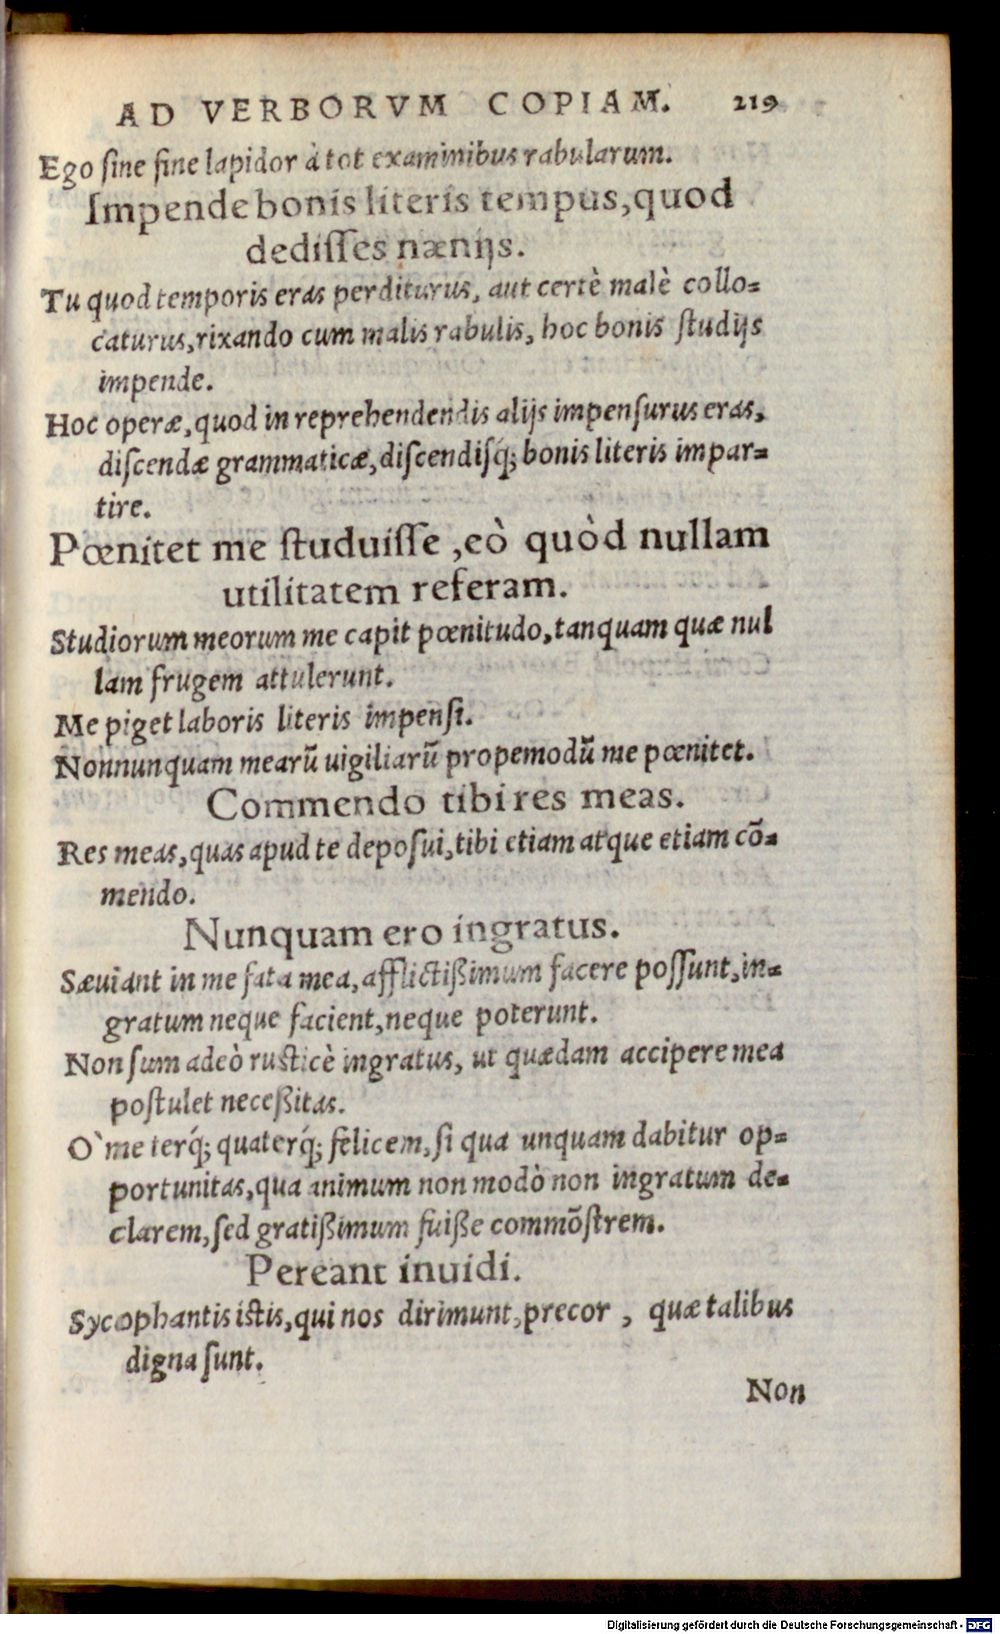 AD VERBORVM COPIAM. 219
Ego ſine fine lapidor à tot examinibus rabularum.
Impende bonis literis tempus, quod
dediſſes nænijs.
Tu quod temporis eras perditurus, aut certè malè collo-
caturus, rixando cum malis rabulis, hoc bonis ſtudijs
impende.
Hoc operæ, quod in reprehendendis alijs impenſurus eras,
diſcendæ grammaticæ, diſcendiſq́; bonis literis impar-
tire.
Pœnitet me ſtuduiſſe, eò quòd nullam
utilitatem referam.
Studiorum meorum me capit pœnitudo, tanquam quæ nul
lam frugem attulerunt.
Me piget laboris literis impenſi.
Nonnunquam mearũ uigiliarũ propemodũ me pœnitet.
Commendo tibi res meas.
Res meas, quas apud te depoſui, tibi etiam atque etiam cõ-
mendo.
Nunquam ero ingratus.
Sæuiant in me fata mea, afflictißimum facere poſſunt, in-
gratum neque facient, neque poterunt.
Non ſum adeò ruſticè ingratus, ut quædam accipere mea
poſtulet neceßitas.
O` me terq́; quaterq́; felicem, ſi qua unquam dabitur op-
portunitas, qua animum non modò non ingratum de-
clarem, ſed gratißimum fuiße commõſtrem.
Pereant inuidi.
Sycophantis iſtis, qui nos dirimunt, precor, quæ talibus
digna ſunt.
Non
Digitalisierung gefördert durch die Deutsche Forschungsgemeinschaft - DFG